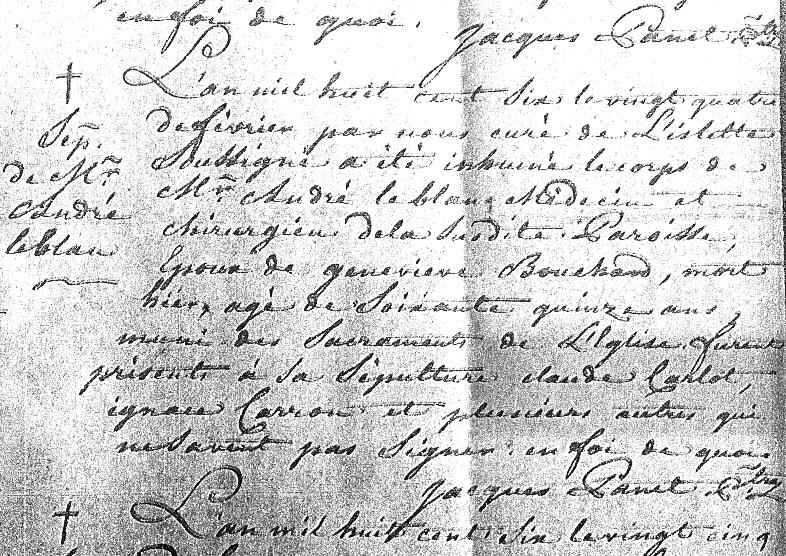 en foi de quoi.
Jacques Panet Ptre
L'an mil huit cent six le vingt quatre
de février par nous curé de L'islette
Soussigné a été inhumé le corps de
Mr. André le blanc Médecin et
chirurgien dela susdite Paroisse,
Epoux de genevieve Bouchard, mort
hier, agé de Soixante quinze ans,
muni des Sacraments de L'Eglise. furent
présents à sa Sépulture claude Carlot,
ignace Carron et plusieurs autres qui
ne Savent pas Signer. en foi de quoi.
Jacques Panet Ptre
L'an mil huit cent six le vingt cinq
Sep.
de Mr.
André
leblan